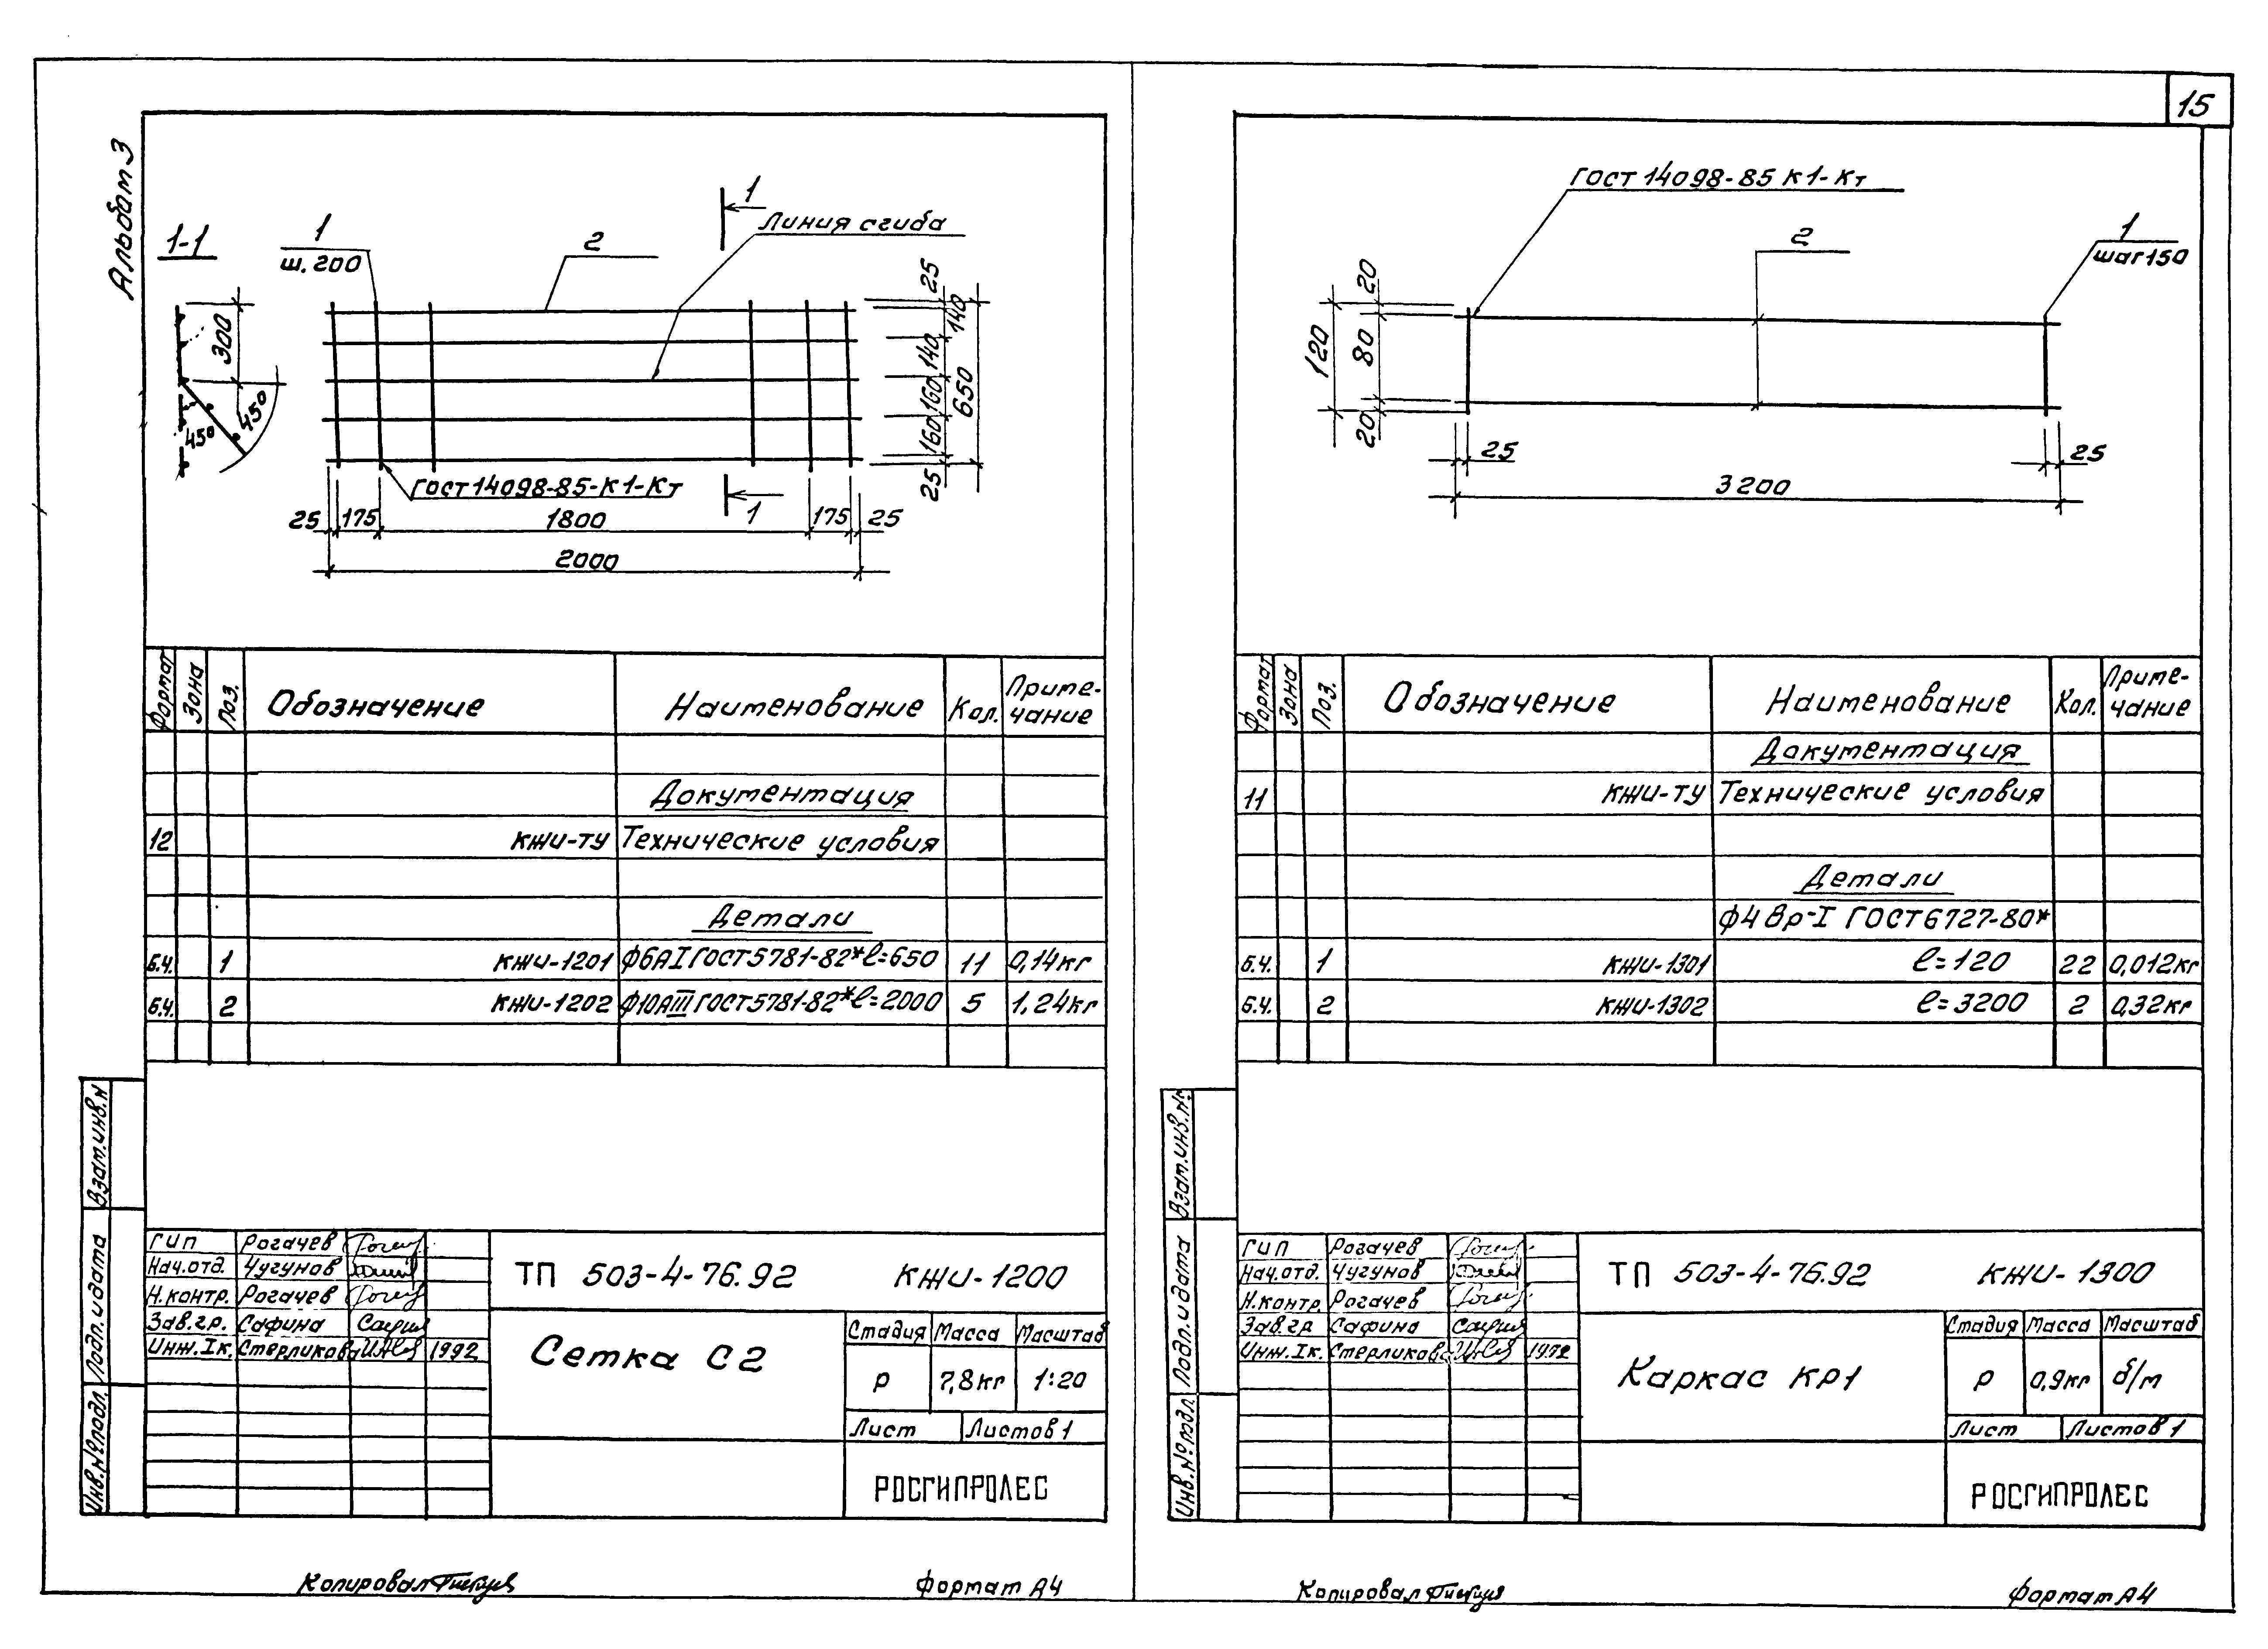 15
Альбом 3
1-1
300
45°
45°
1
ш. 200
2
1
Линия сгиба
25
140
140
160
160
25
650
ГОСТ 14098-85-К1-Кт
1
25 175 1800 175 25
2000
Формат Зона Поз. Обозначение Наименование Кол. Приме-
чание
Документация
12 КЖИ-ТУ Технические условия
Детали
Б.Ч. 1 КЖИ-1201 ф6АI ГОСТ 5781-82* ℓ=650 11 0,14кг
Б.Ч. 2 КЖИ-1202 ф10АIII ГОСТ 5781-82* ℓ=2000 5 1,24кг
Взам.инв.н
Подп. и дата
Инв.№подл.
ГИП Рогачев
Нач.отд. Чугунов
Н.контр. Рогачев
Зав.гр. Сафина
Инж.Iк. Стерликова 1992
ТП 503-4-76.92 КЖИ-1200
Сетка С2
Стадия Масса Масштаб
Р 7,8кг 1:20
Лист Листов 1
РОСГИПРОЛЕС
Копировал
Формат А4
ГОСТ 14098-85 К1-Кт
2
1
шаг 150
20
80
20
120
25
25
3200
Формат Зона Поз. Обозначение Наименование Кол. Приме-
чание
Документация
11 КЖИ-ТУ Технические условия
Детали
ф4 Вр-I ГОСТ 6727-80*
Б.Ч. 1 КЖИ-1301 ℓ=120 22 0,012кг
Б.Ч. 2 КЖИ-1302 ℓ=3200 2 0,32кг
Взам.инв.№
Подп. и дата
Инв.№подл.
ГИП Рогачев
Нач.отд. Чугунов
Н.контр Рогачев
Зав.гр Сафина
Инж.Iк. Стерликова 1992
ТП 503-4-76.92 КЖИ-1300
Каркас КР1
Стадия Масса Масштаб
Р 0,9кг б/м
Лист Листов 1
РОСГИПРОЛЕС
Копировал
Формат А4